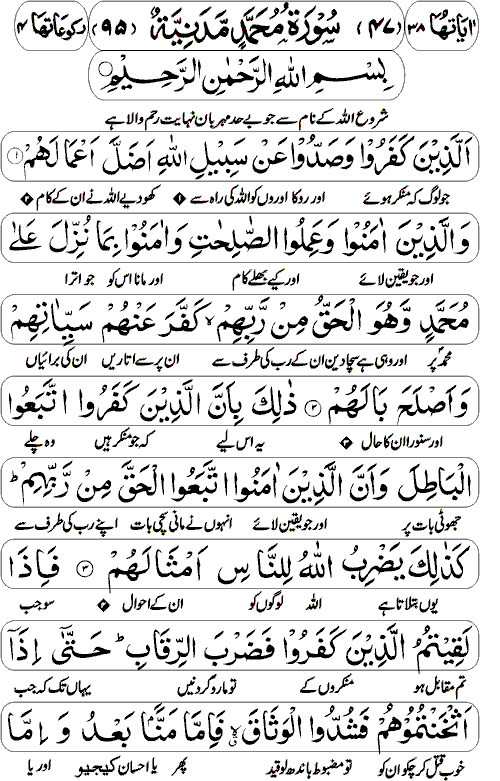 اٰیاتہا ۳۸ (۴۷) سُوْرَۃُ مُحَمَّدٍ مَّدَنِیَّۃٌ (۹۵) رکوعاتہا ۴
بِسْمِ اللّٰهِ الرَّحْمٰنِ الرَّحِیْمِ
شروع اللہ کے نام سے جو بے حد مہربان نہایت رحم والا ہے
اَلَّذِیْنَ كَفَرُوْا وَصَدُّوْا عَنْ سَبِیْلِ اللّٰهِ اَضَلَّ اَعْمَالَهُمْ ۱
جو لوگ کہ منکر ہوئے اور روکا اوروں کو اللہ کی راہ سے ۱ کھو دیے اللہ نے ان کے کام ۲
وَالَّذِیْنَ اٰمَنُوْا وَعَمِلُوا الصّٰلِحٰتِ وَاٰمَنُوْا بِمَا نُزِّلَ عَلٰی
اور جو یقین لائے اور کیے بھلے کام اور مانا اس کو جو اترا
مُحَمَّدٍ وَّهُوَ الْحَقُّ مِنْ رَّبِّهِمْ ۙ كَفَّرَ عَنْهُمْ سَیِّاٰتِهِمْ
محمدؐ پر اور وہی ہے سچا دین ان کے رب کی طرف سے ان پر سے اتاریں ان کی برائیاں
وَاَصْلَحَ بَالَهُمْ ۲ ذٰلِكَ بِاَنَّ الَّذِیْنَ كَفَرُوا اتَّبَعُوا
اور سنوارا ان کا حال ۲ یہ اس لیے کہ جو منکر ہیں وہ چلے
الْبَاطِلَ وَاَنَّ الَّذِیْنَ اٰمَنُوا اتَّبَعُوا الْحَقَّ مِنْ رَّبِّهِمْ ؕ
جھوٹی بات پر اور جو یقین لائے انہوں نے مانی سچی بات اپنے رب کی طرف سے
كَذٰلِكَ یَضْرِبُ اللّٰهُ لِلنَّاسِ اَمْثَالَهُمْ ۳ فَاِذَا
یوں بتلاتا ہے اللہ لوگوں کو ان کے احوال ۶ سو جب
لَقِیْتُمُ الَّذِیْنَ كَفَرُوْا فَضَرْبَ الرِّقَابِ ؕ حَتّٰۤی اِذَاۤ
تم مقابل ہو منکروں کے تو مارو گردنیں یہاں تک کہ جب
اَثْخَنْتُمُوْهُمْ فَشُدُّوا الْوَثَاقَ ۙ فَاِمَّا مَنًّۢا بَعْدُ وَاِمَّا
خوب قتل کر چکو ان کو تو مضبوط باندھ لو قید پھر یا احسان کیجیو اور یا